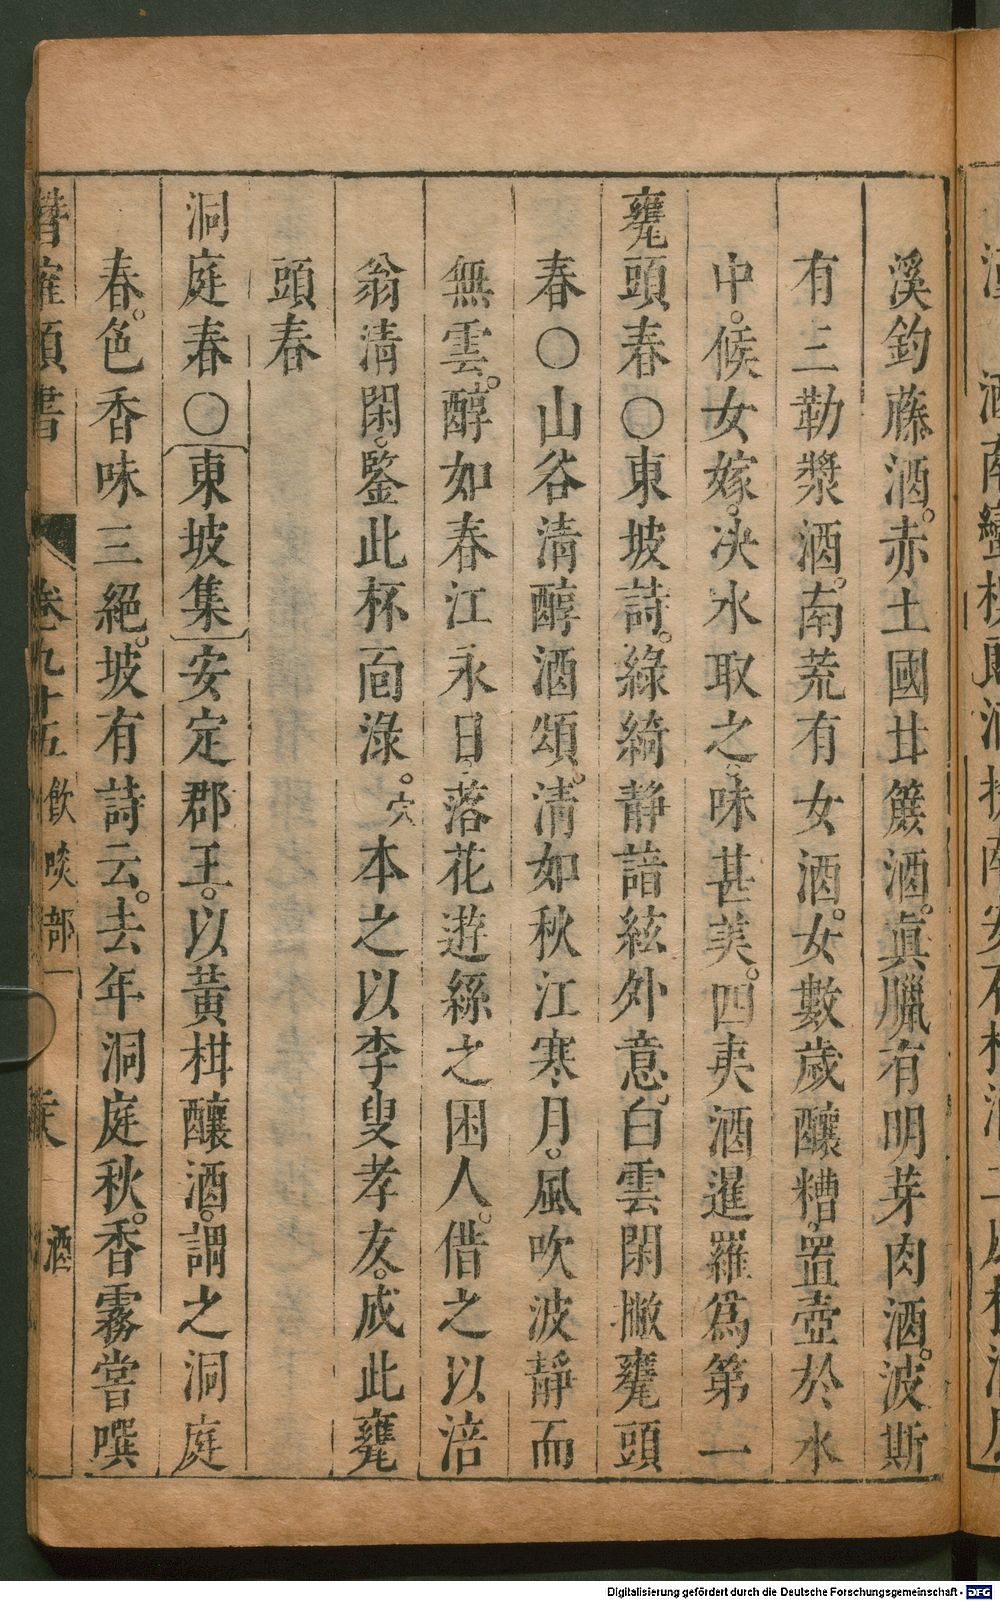 溪釣藤酒。赤土國甘蔗酒。眞臘有明芽肉酒。波斯
有三勒漿酒。南荒有女酒。女數歲釀糟。置壺於水
中。候女嫁。决水取之。味甚美。四夷酒暹羅爲第一
甕頭春〇東坡詩。綠綺靜諳絃外意。白雲閑撇甕頭
春〇山谷清醇酒頌。清如秋江寒月。風吹波靜而
無雲。醇如春江永日。落花遊絲之困人。借之以涪
翁清閑。鑒此杯面淥。〇穴本之以李叟孝友。成此甕
頭春
洞庭春〇〔東坡集〕安定郡王。以黃柑釀酒。謂之洞庭
春。色香味三絕。坡有詩云。去年洞庭秋。香霧嘗噀
潛確類書 卷九十五 飲啖部一 酒
Digitalisierung gefördert durch die Deutsche Forschungsgemeinschaft - DFG